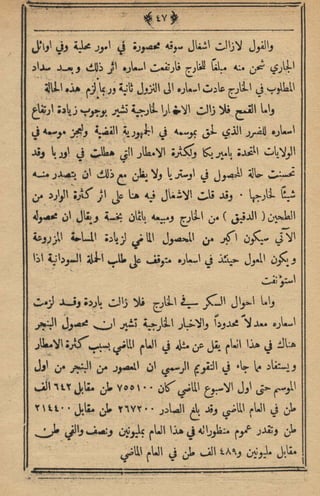 ﴿٤٧﴾
والفول لازالت اشغال سوقه محصورة في امور محلية وفي اوائل
الجاري شحن منه مبلغًا للخارج فارتفعت اسعاره اثر ذلك وبعد سداد
المطلوب في الخارج عادت اسعاره الى النزول ثانية وربما لزم هذه الحالة
واما القمح فلا زالت الاخبار الخارجية تشير بوجوب زيادة ارتفاع
اسعاره للضرر الذي لحق بموسمه في الجمهورية الفضية ولعجز موسمه في
الولايات المتحدة باميريكا ولكثرة الامطار التي هطلت في اوربا وقد
تحسنت حالة المحصول في اوستريا ولا يظن مع ذلك ان يتصدر منه
شيئًا لخارجها ٠ وقد قلت الاشغال فيه هنا على اثر كثرة الوارد من
الطحين ( الدقيق ) من الخارج ومبيعه باثمان بخسة ويقال ان محصوله
الآتي سيكون اكبر من المحصول الماضي لزيادة المساحة المزروعة
ويكون المعول حينئذ في اسعاره متوقف على طلب الحملة السودانية اذا
استؤنفت
واما احوال السكر في الخارج فلا زالت باردة وقد لزمت
اسعاره معدلاً محدوداً والاخبار الخارجية تشير ان محصول البنجر
هناك في هذا العام يقل عن مثله في العام الماضي بسبب كثرة الامطار
ويستفاد مما جاء في التقويم الرسمي ان المعصور من البنجر من اول
الموسم حتى اول الاسبوع الماضي كان ٧٥٥١٠٠ طن مقابل ٦٤٢ الف
طن في العام الماضي وقد بلغ الصادر ٢٦٧٢٠٠ طن مقابل ٢١٤٤٠٠
طن وتقدر عموم منظوراته في هذا العام بمليونين ونصف والفي طن
مقابل مليونين و٤٨٩ الف طن في العام الماضي